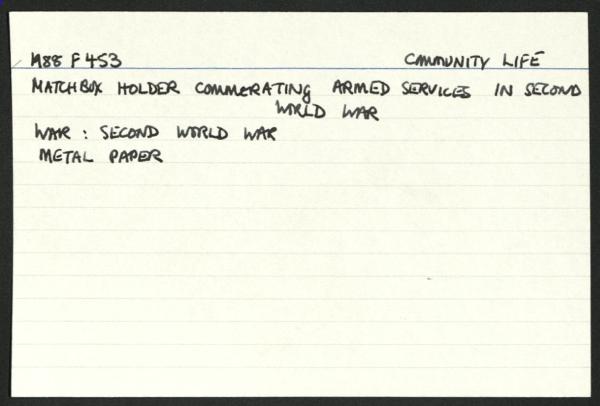 M88 F 453 COMMUNITY LIFE
MATCHBOX HOLDER COMMERATING ARMED SERVICES IN SECOND
WORLD WAR
WAR : SECOND WORLD WAR
METAL PAPER